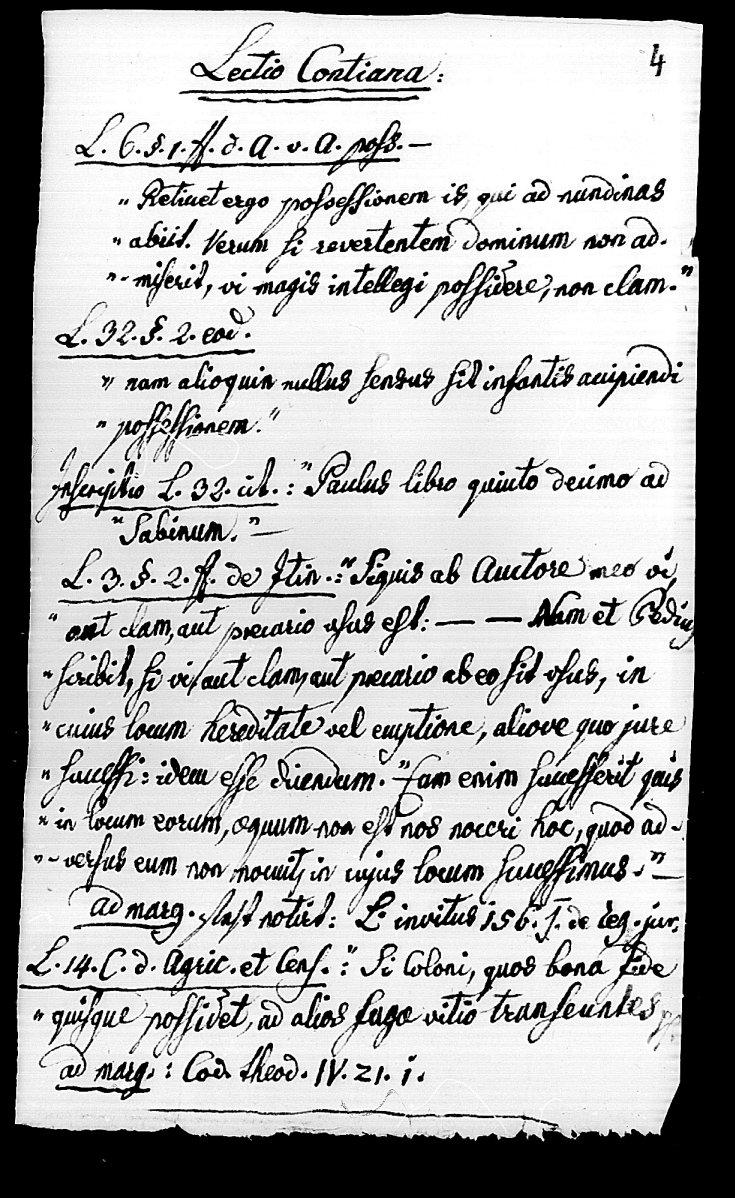 4
Lectio Contiana:
L. 6. §. 1. ff. d. A. v. A. poss. —
„ Retinet ergo possessionem is, qui ad nundinas
„ abiit. Verum si revertentem dominum non ad-
„ - miserit, vi magis intellegi possidere, non clam."
L. 32. §. 2. eod.
„ nam alioquin nullus sensus sit infantis accipiendi
„ possessionem."
Inscriptio L. 32. cit.: "Paulus libro quinto decimo ad
"Sabinum." —
L. 3. §. 2. ff. de Itin.: "Siquis ab Auctore meo vi
„ aut clam, aut precario usus est: — — Nam et Pedius
„ scribit, si vi, aut clam, aut precario ab eo sit usus, in
„ cuius locum hereditate vel emptione, aliove quo jure
„ successi: idem esse dicendum. "Cum enim successerit quis
„ in locum eorum, æquum non est nos noceri hoc, quod ad-
„ - versus eum non nocuit, in cujus locum successimus." —
ad marg. notirt: L. invitus 156. ff. de reg. jur.
L. 14. C. d. Agric. et Cens.: "Si Coloni, quos bona fide
„ quisque possidet, ad alios fugæ vitio transeuntes
ad marg.: Cod. theod. IV. 21. 1.